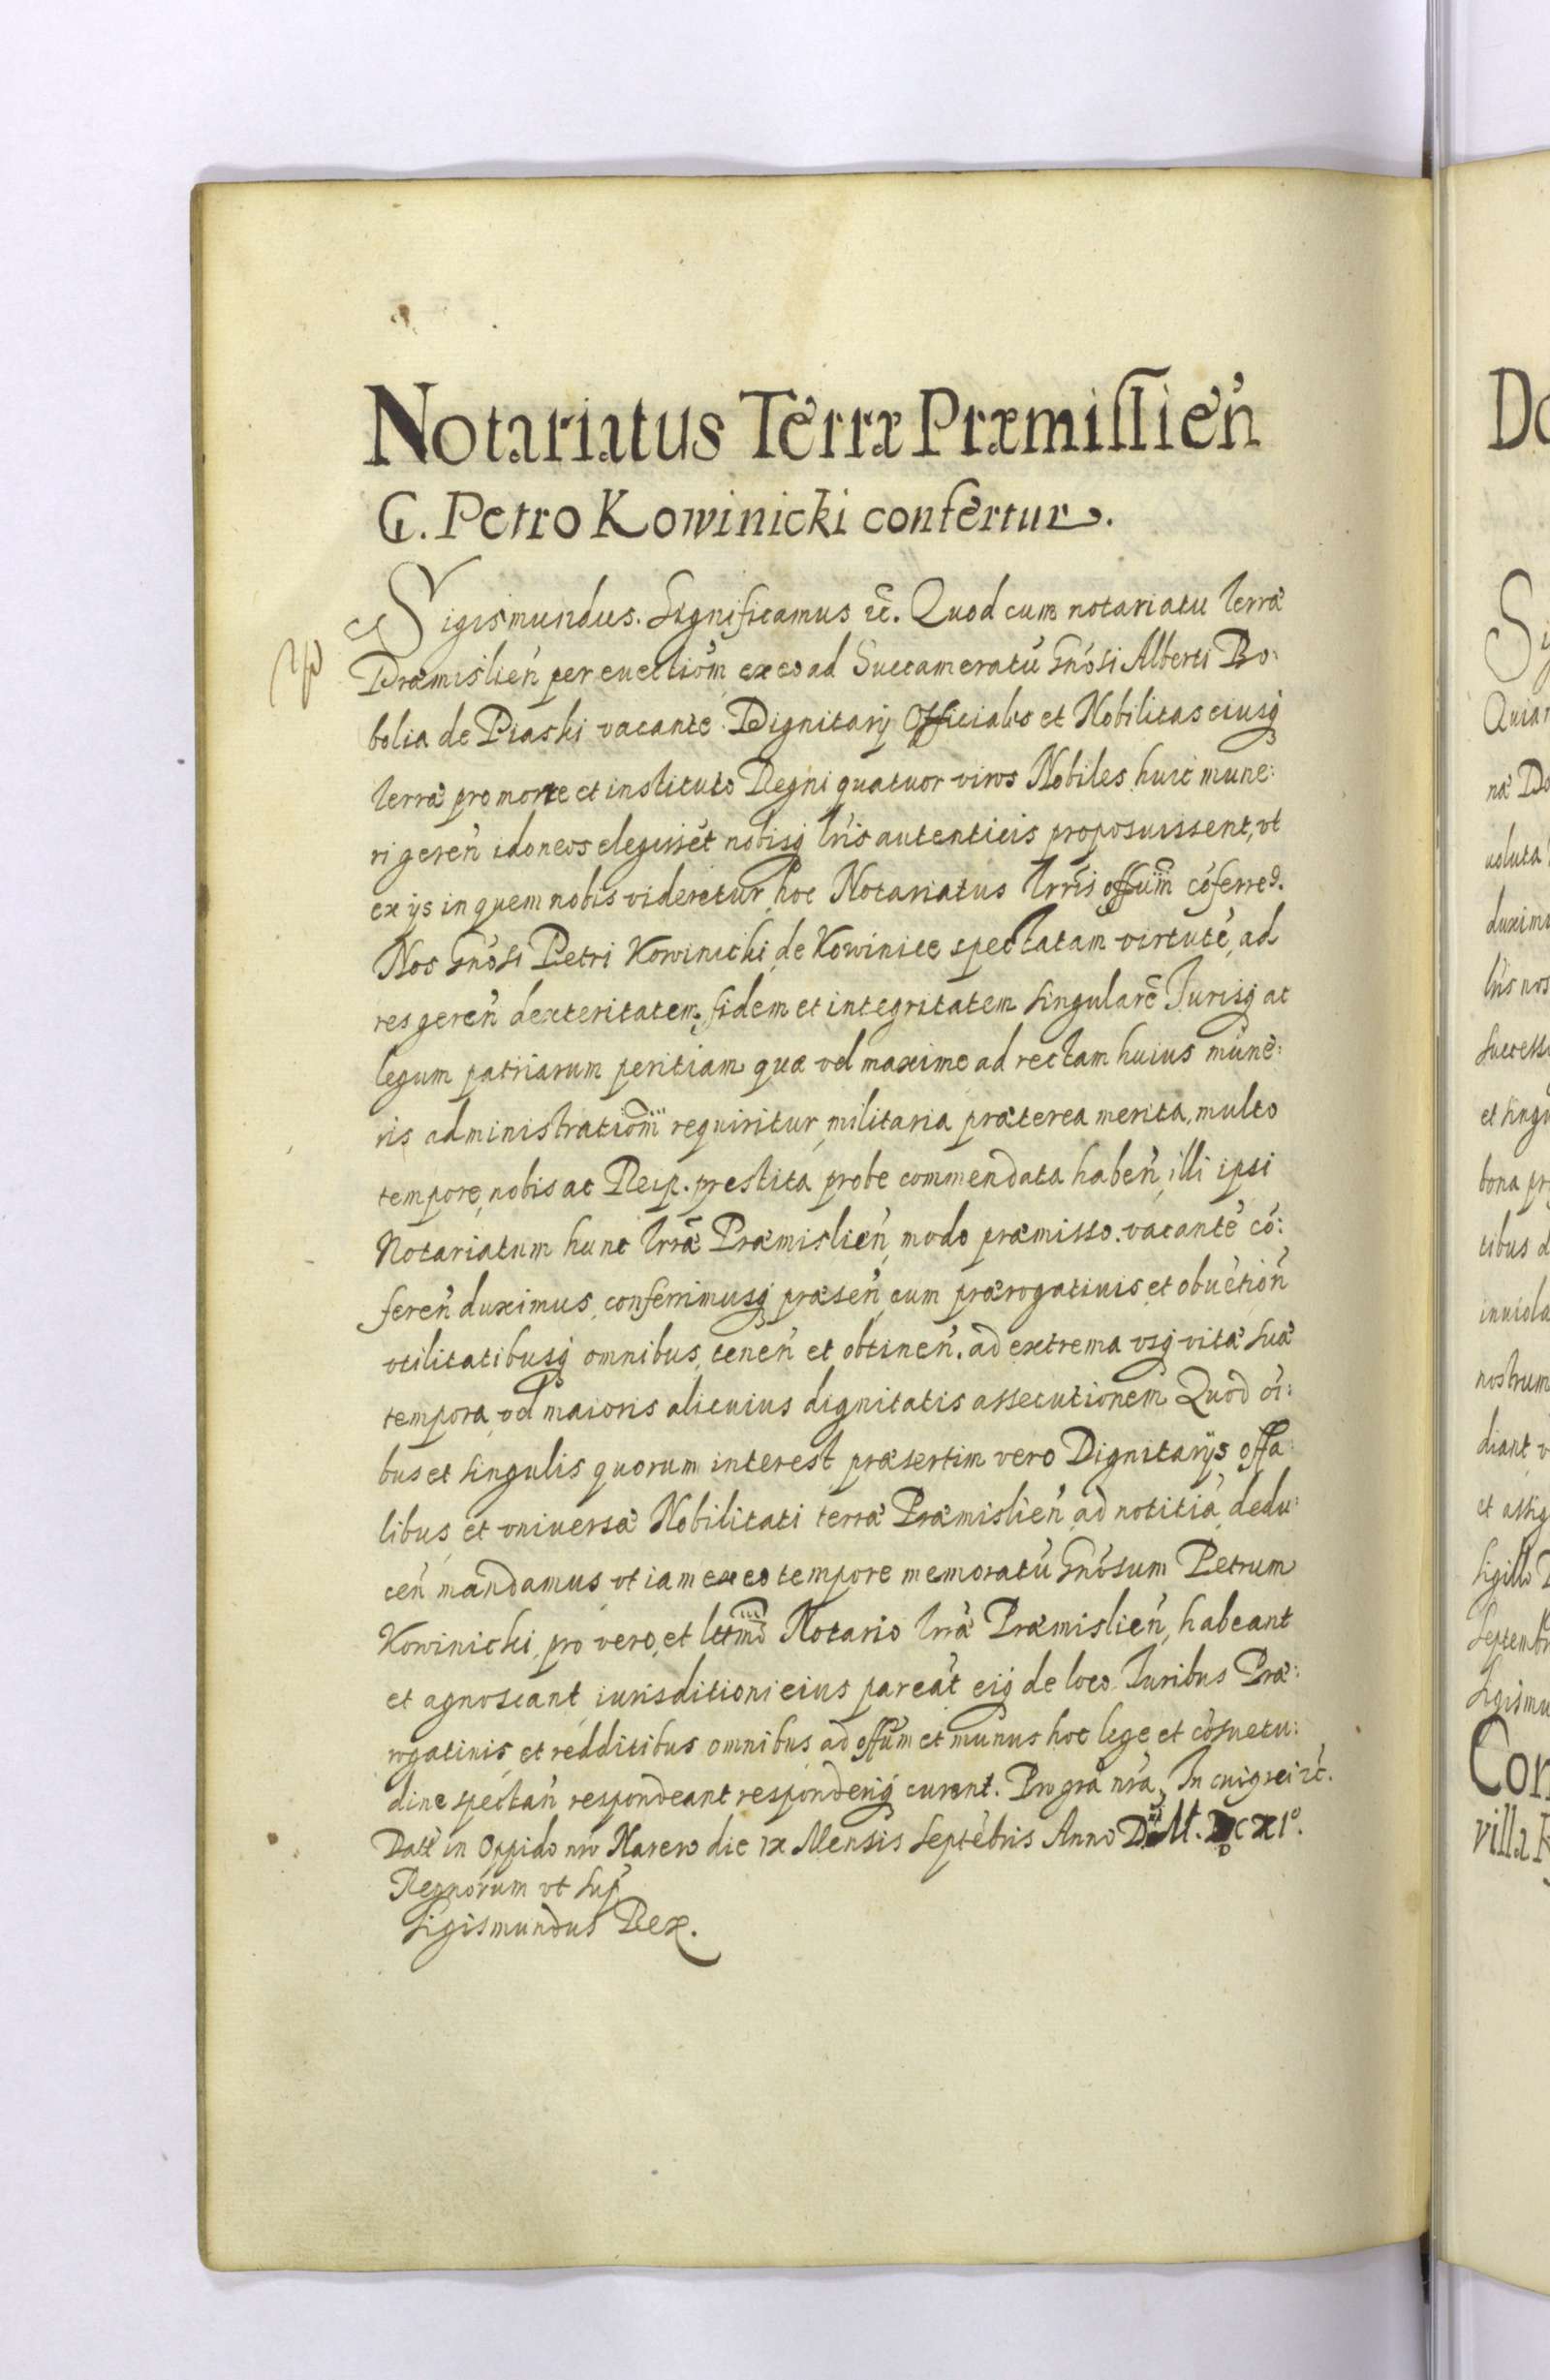 Notariatus Terræ Præmisslień
G. Petro Kowinicki confertur.
Sigismundus. Significamus ꝛc̄. Quod cum notariatu terræ
Præmislień per euectiōm ex eo ad Succameratū Gnōsi Alberti Bo:
bolia de Piaski vacante. Dignitarij Officiales et Nobilitas eiusq́
terræ pro more et instituto Regni quatuor viros Nobiles huic mune:
ri gereń idoneos elegissēt nobisq́ lris̄ autenticis proposuissent, vt
ex ijs in quem nobis videretur, hoc Notariatus trris̄ offium̄ cōferred.
Nos Gnōsi Petri Kowinicki de Kowinice spectatam virtutē, ad
res gereń dexteritatem, fidem et integritatem singularē Jurisq́ ac
legum patriarum peritiam quæ vel maxime ad rectam huius mune:
ris administratiom̄ requiritur, militaria præterea merita, multo
tempore, nobis ac Reip. præstita probe commendata habeń, illi ipsi
Notariatum hunc trrǣ Præmislień, modo præmisso vacantē cō:
fereń duximus, conferimusq́ præseń, cum prærogatiuis et obuētioń
vtilitatibusq́ omnibus, teneń et obtineń. ad extrema vsq́ vitæ suæ
tempora, vel maioris alicuius dignitatis assecutionem Quod oī:
bus et singulis quorum interest præsertim vero Dignitarijs offa:
libus, et vniversæ Nobilitati terræ Præmislień ad notitiā dedu:
ceń mandamus, vt iam ex eo tempore memoratū Gnōsum Petrum
Kowinicki, pro vero, et lttmo̅ Notario trrǣ Præmislień, habeant
et agnoscant, iurisditioni eius pareāt eiq́ de loco Juribus Præ:
rogatiuis, et redditibus omnibus ad offūm et munus hoc lege et cōsuetu:
dine spectań respondeant responderiq́ curent. Pro gra̅ nra̅, In cuiq́ rei ꝛc̄.
Datt̄ in Oppido nro̅ Narew die ıx Mensis Septēbris Anno Dni̅ M. DC XI°.
Regnorum vt sup̄
Sigismundus Rex.